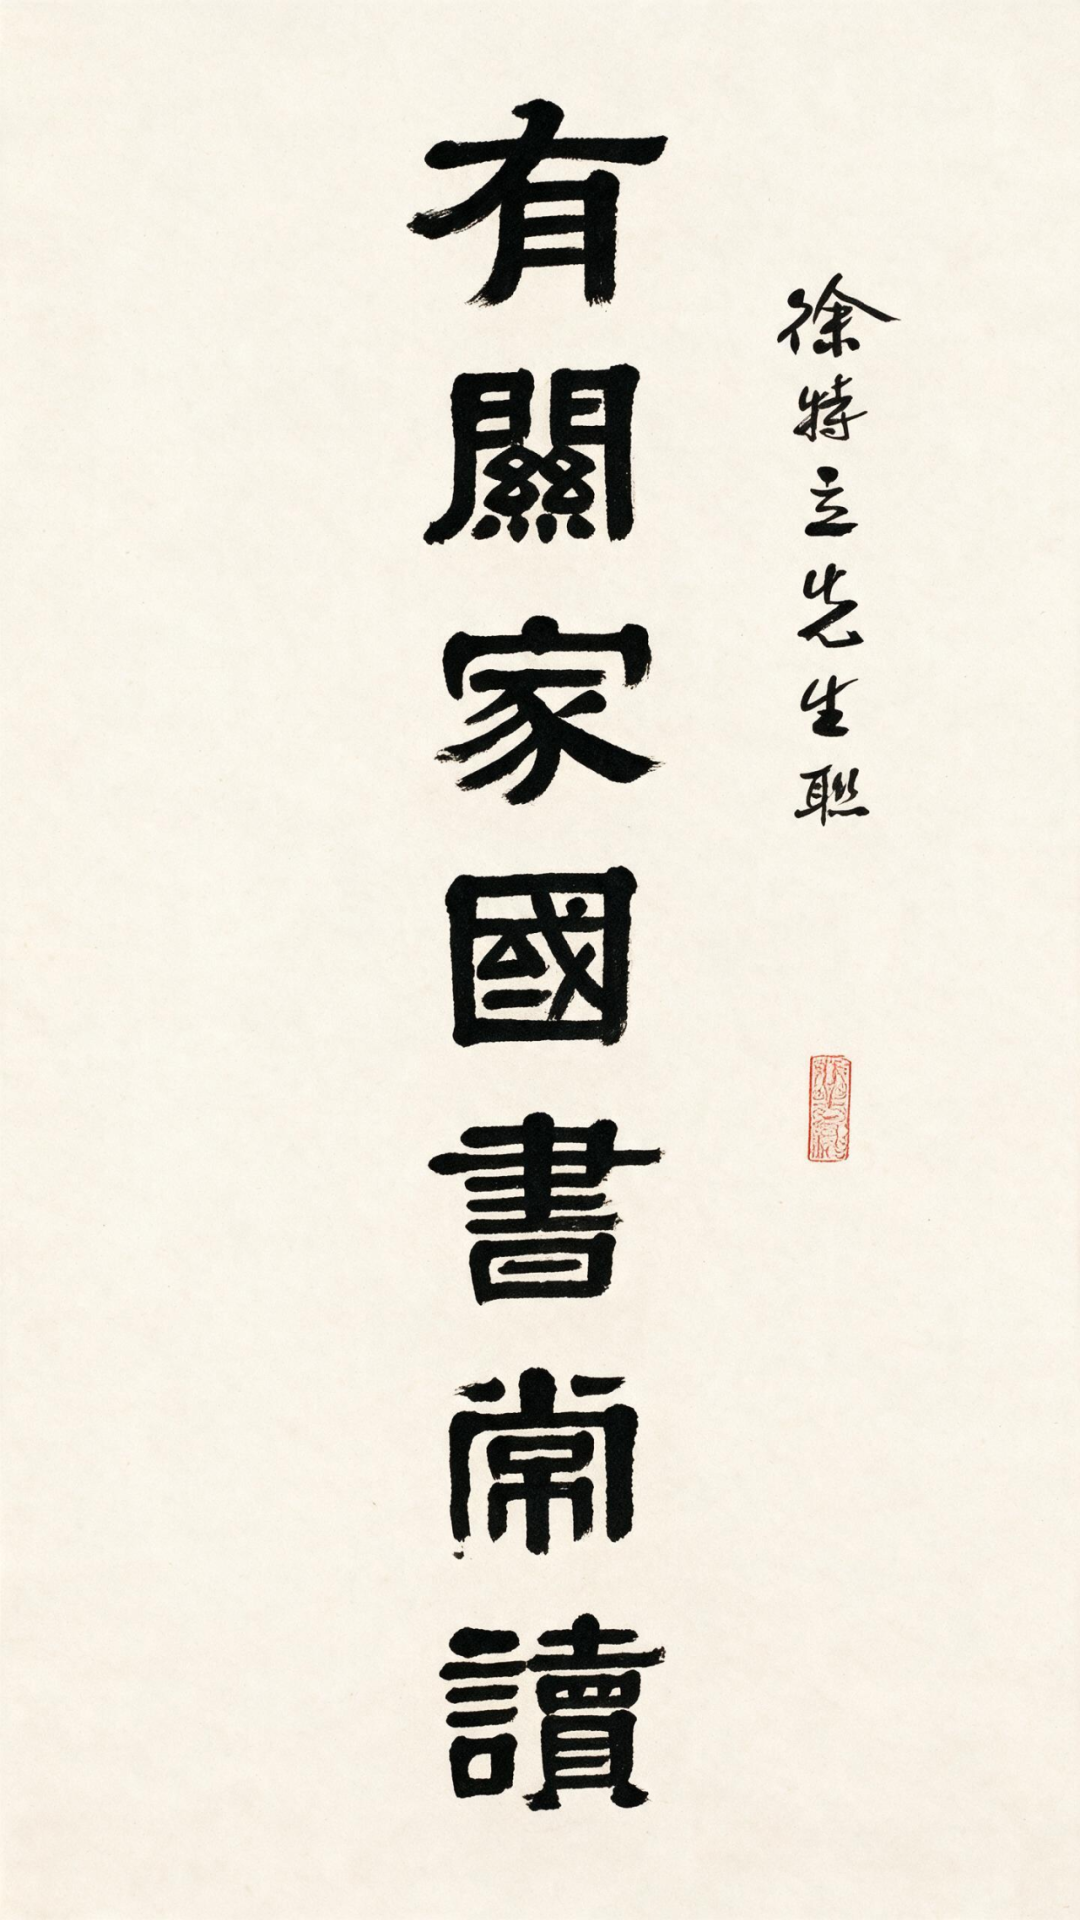 徐特立先生聯
有關家國書常讀